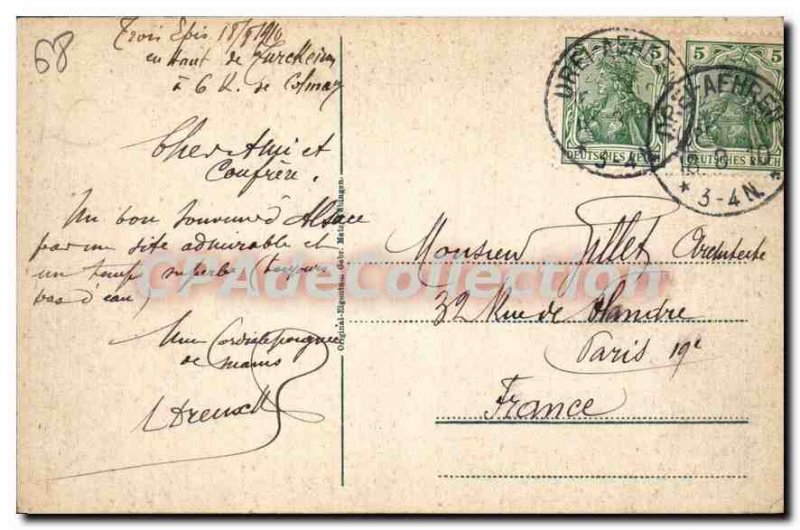 68
Trois Epis 18/9 1910
en haut de Turckheim
à 6 K. de Colmar
Cher Ami et
Confrère.
Un bon souvenir d'Alsace
par un site admirable et
un temps superbe (toujours
pas d'eau)
Une Cordiale poignée
de mains
Original-Eigentum Gebr. Metz,
DREI-AEHREN
3-4 N
DREI-AEHREN
* 3-4 N. *
5
5 5
DEUTSCHES REICH
DEUTSCHES REICH
Monsieur Gillet Architecte
32 Rue de
Paris 19e
France
CPAdeCollection